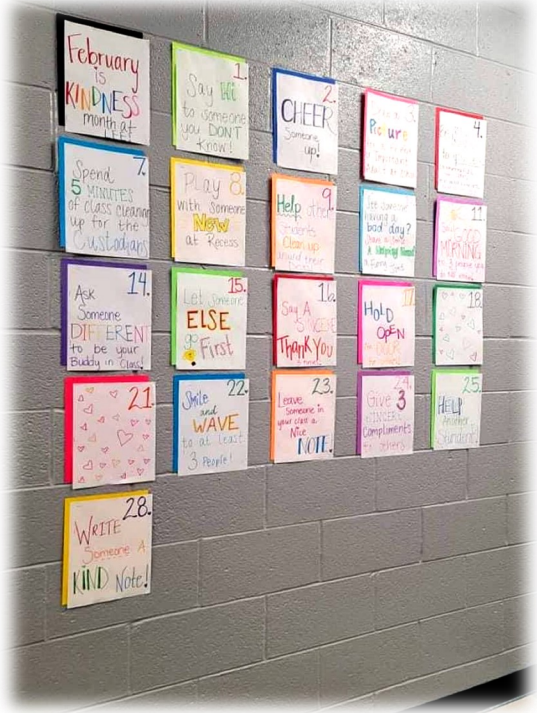 February
is
KINDNESS
month at
1.
Say Hi
to someone
you DONT
know!
2.
CHEER
Someone
up!
Picture
4.
7.
Spend
5 MINUTES
of class cleaning
up for the
Custodians
Play 8.
with someone
Now
at Recess
Help other
Students
Clean up
bad day?
11
GOOD
MORNING
14.
Ask
Someone
DIFFERENT
to be your
Buddy in Class!
15.
Let someone
ELSE
go First
16
Say A SINCERE
THANK YOU
17.
HOLD
OPEN
18.
21.
22.
Smile
and
WAVE
to at least
3 People!
23.
Leave
Someone in
your class a
Nice
NOTE.
24.
Give 3
SINCERE
Compliments
to others
25.
HELP
Another
Student
28.
WRITE
Someone A
KIND Note!